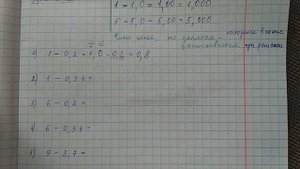 1 = 1,0 = 1,00 = 1,000
5 = 5,0 = 5,00 = 5,000
запятая
при решении
1) 1 - 0,2 = 1,0 - 0,2 = 0,8
2) 1 - 0,34 =
3) 6 - 0,2 =
4) 6 - 0,34 =
5) 9 - 3,7 =